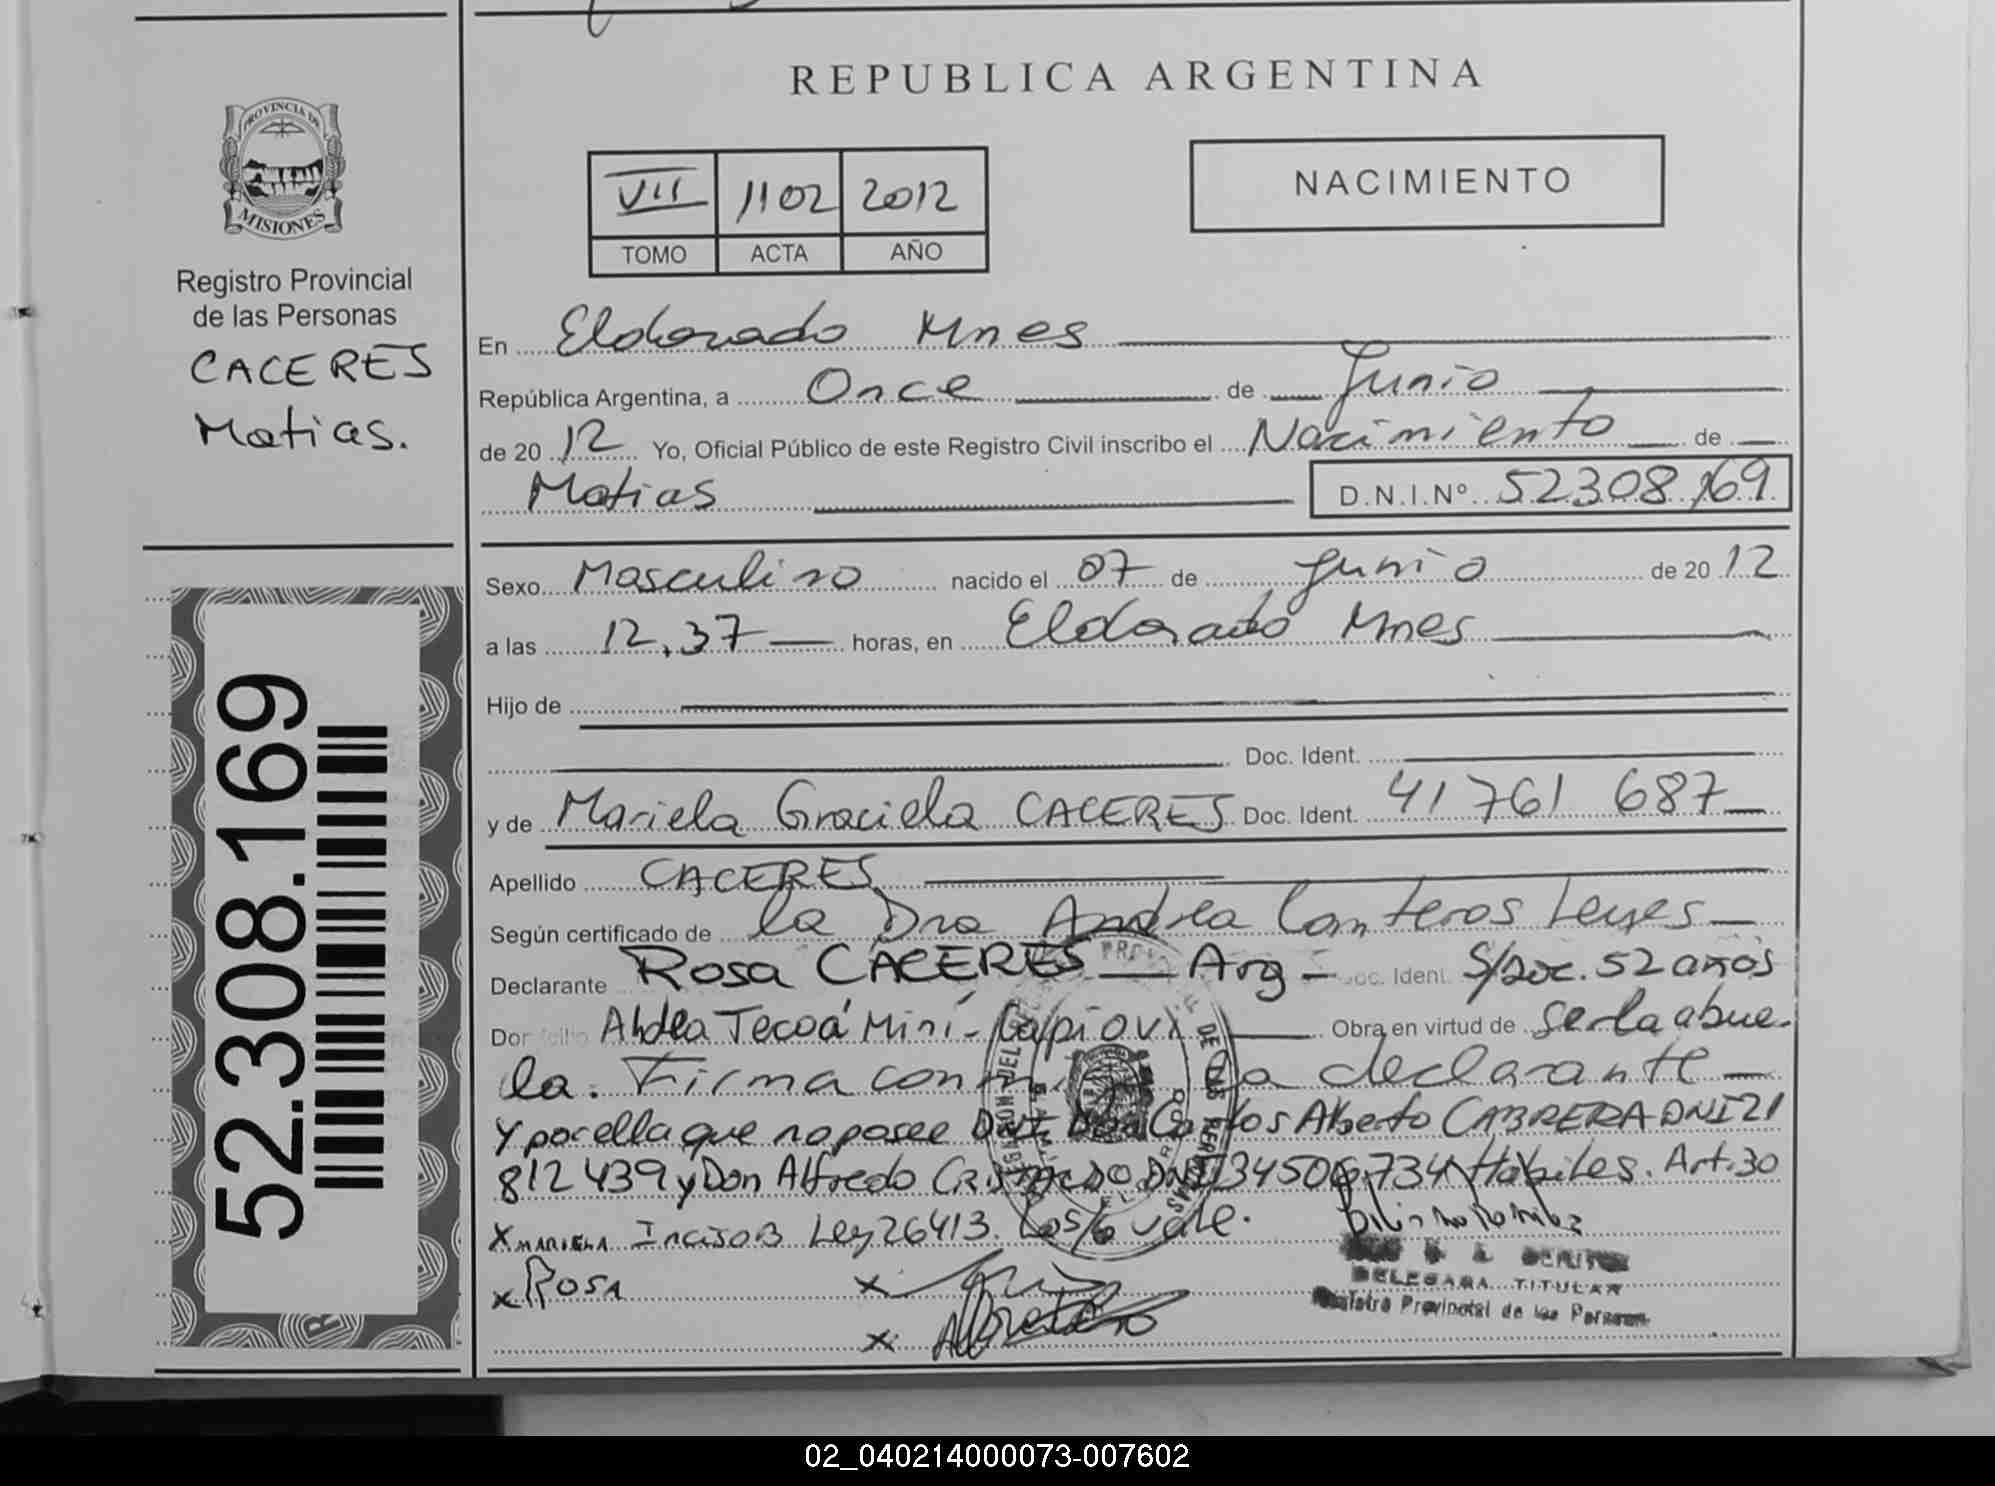 REPUBLICA ARGENTINA
PROVINCIA DE
MISIONES
Registro Provincial
de las Personas
CACERES
Matias.
52.308.169
VII 1102 2012
TOMO ACTA AÑO
NACIMIENTO
En Eldorado Mnes
República Argentina, a Once de Junio
de 2012 Yo, Oficial Público de este Registro Civil inscribo el Nacimiento de
Matias D.N.I.Nº 52308169
Sexo Masculino nacido el 07 de Junio de 2012
a las 12,37 horas, en Eldorado Mnes
Hijo de
Doc. Ident.
y de Mariela Graciela CACERES Doc. Ident. 41761 687
Apellido CACERES
Según certificado de la Dra Andrea Canteros Leyes
Declarante Rosa CACERES Arg Doc. Ident. S/Doc. 52 años
Domicilio Aldea Tecoá Miní - Capioví Obra en virtud de ser la abue-
la. Firma con la declarante
y por ella que no posee DNI Don Carlos Alberto CABRERA DNI 21
812 439 y Don Alfredo DNI 34506734 Habiles. Art. 30
x MARIELA Inciso B Ley 26413. vale.
x ROSA x
x
DELEGADA TITULAR
Registro Provincial de las Personas
02_040214000073-007602